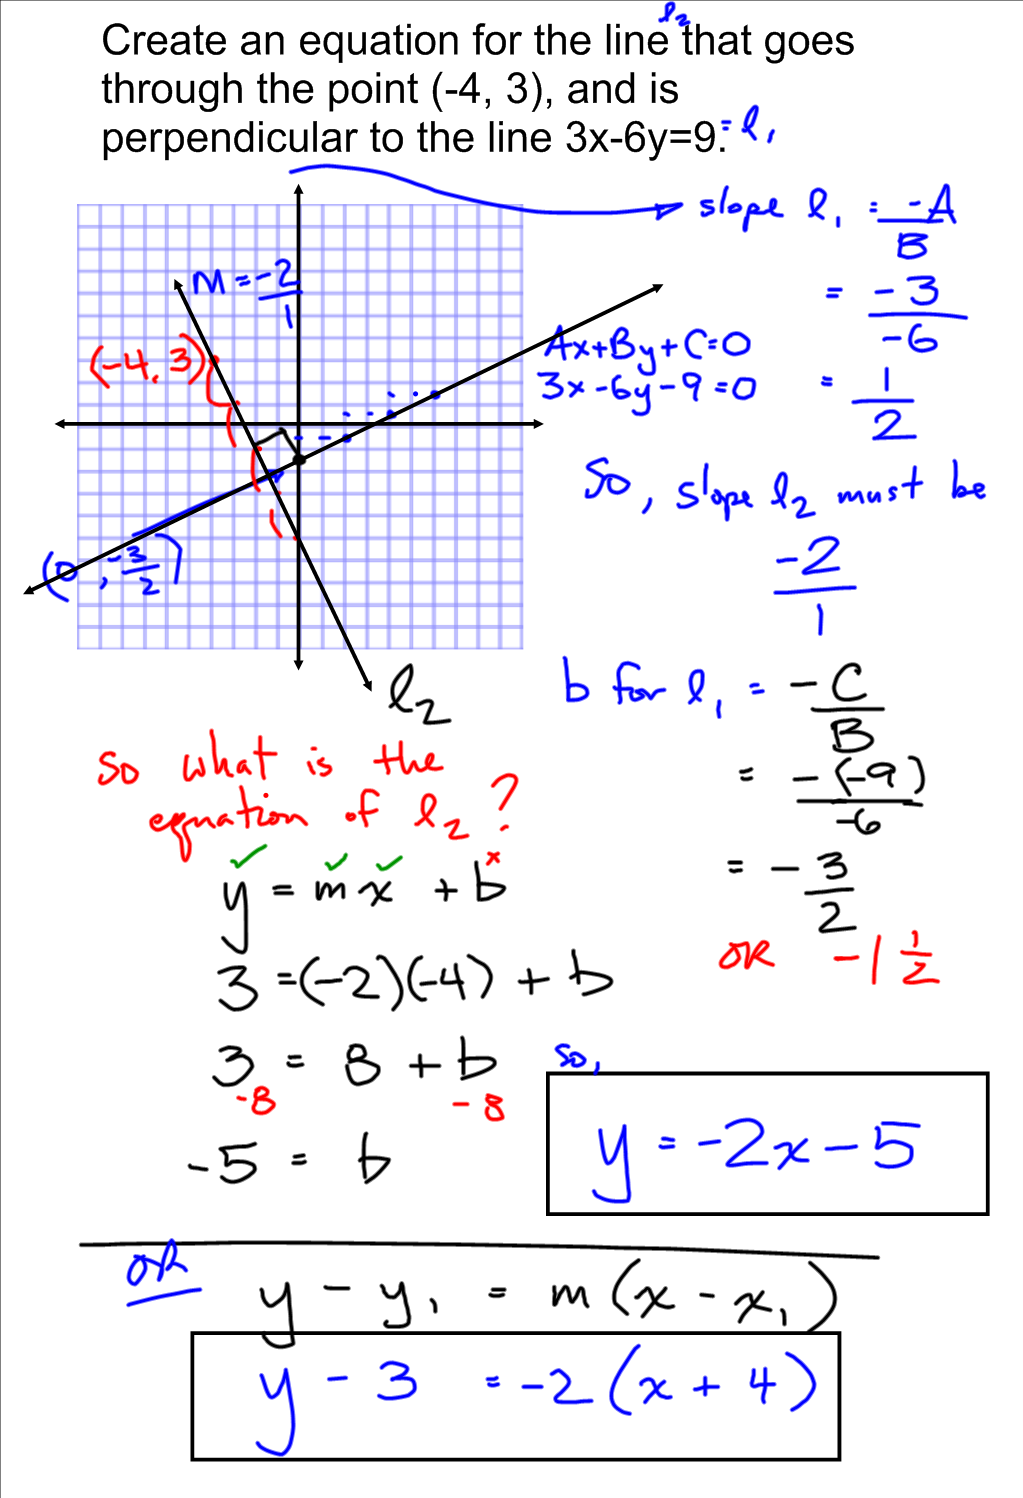 Create an equation for the line l₂ that goes
through the point (-4, 3), and is
perpendicular to the line 3x-6y=9. = l₁
slope l₁ = -A/B
= -3/-6
= 1/2
M = -2/1
(-4, 3)
Ax+By+C=0
3x-6y-9=0
So, slope l₂ must be
-2/1
(0, -3/2)
l₂
b for l₁ = -C/B
= -(-9)/-6
= -3/2
OR -1 1/2
so what is the
equation of l₂?
y = mx + b
3 = (-2)(-4) + b
3 = 8 + b
-8 -8
-5 = b
so,
y = -2x - 5
OR
y - y₁ = m(x - x₁)
y - 3 = -2(x + 4)